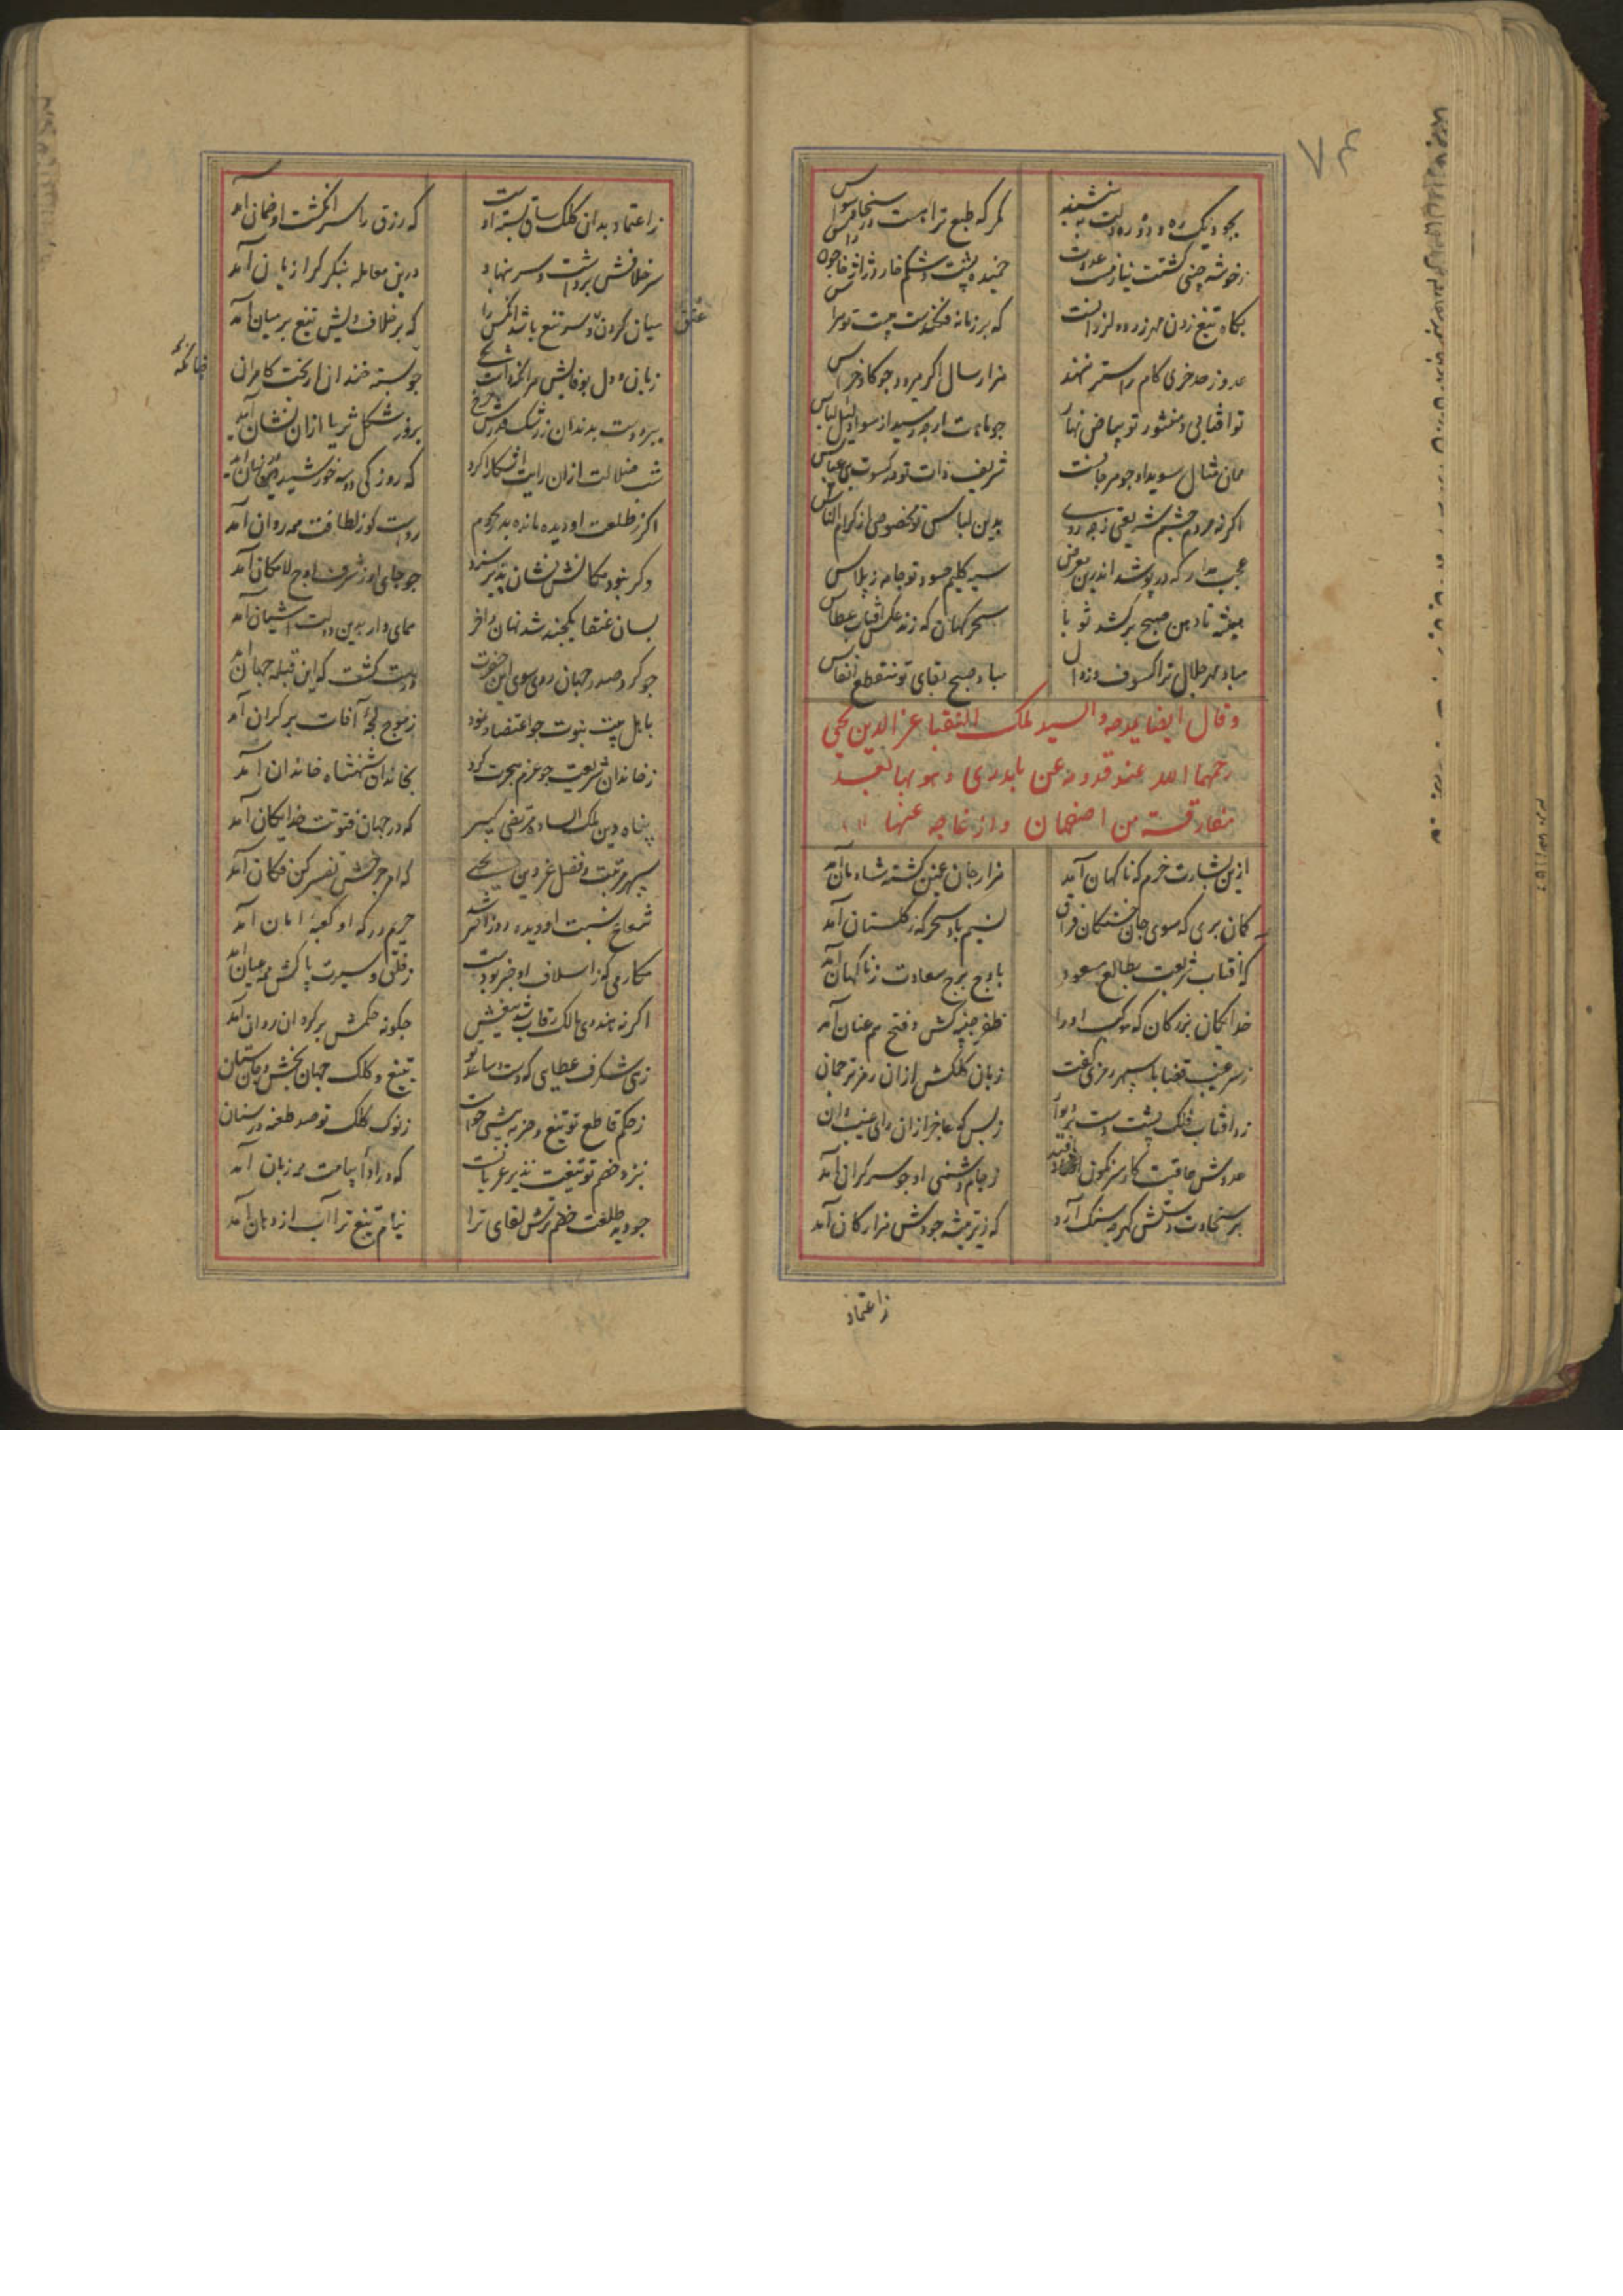 بجود نیک ره و دوره ولیت به نشیند
مگر که طبع ترا هست در سخا
ز خوشه چینی کشتت نیازمند
خمیده پشت و شکم خار
بکاه تیغ زدن مهر زرد و لرزانست
که بر زمانه فکندست هیبت تو هراس
عدو ز صد خری کام
هزار سال اکر میرود جو کاو خراس
تو آفتابی و منشور تو بیاض نهار
جو ماهت ار جه رسید از سواد لیل لباس
همان مثال سویدا و جوهر جانست
شریف ذات تو در کسوت بنی عباس
اکر نه مردم چشم شریعتی ز جه روی
بدین لباس تو مخصوصی از کرام الناس
عجب مدار که در پوشد اندرین معرض
سیه کلیم حسود تو جامه ز پلاس
همیشه تا دهن صبح بر کشد ثوبا
سحر کهان که زند عکس آفتاب عطاس
مباد مهر جلال ترا کسوف و زوال
مباد صبح بقای تو منقطع انفاس
و قال ایضا یمدحه و السید ملک النقبا عز الدین یحیی
رحمهما الله عند قدومه عن بلاد الری و هو بها بعد
مفارقته من اصفهان و ازعاجه عنها
ازین بشارت خرم که ناکهان آمد
هزار جان غمین کشته شادمان آمد
کمان بری که سوی جان خستکان فراق
نسیم باد سحر که ز کلستان آمد
که آفتاب شریعت بطالع مسعود
باوج برج سعادت ز ناکهان آمد
خدایکان بزرکان که موکب او را
ظفر جنیبه کش و فتح هم عنان آمد
ز سر غیب قضا با سپهر رمزی کفت
زبان کلکش ازان رمز ترجمان
زد آفتاب فلک پشت دست بر دیوار
ز بس که عاجز ازان رای غیب دان
عدوش عاقبت کار سرنکون افتد
ز جام دشمنی او جو سر کران آمد
بر سخاوت دستش کهر جه سنک آرد
که ریزه تیشه جودش هزار کان آمد
زاعتماد
ز اعتماد بدان کلک ساق بسته اوست
که رزق را سر انکشت او ضمان آمد
سر خلافش برداشت و سر بنهاد
درین معامله بنکر کرا زیان آمد
میان کردن و سر تیغ باشد آنکس را
که بر خلاف ویش تیغ بر میان آمد
زبان و دل بوفایش هر آنکه راست
جو بسته خندان از بخت کامران
ببرد دست بدندان ز رشک قدرش چرخ
بروز شکل ثریا ازان نشان آمد
شب ضلالت ازان رایت آشکارا کرد
که روز کی دو سه خورشید دین نهان آمد
اکر ز طلعت او دیده مانده بد محروم
رواست کو ز لطافت همه روان آمد
وکر نبود مکانش نشان پذیر سزد
جو جای او ز شرف اوج لامکان آمد
بسان عنقا یکچند شد نهان و آخر
همای وار بدین دولت آشیان آمد
جو کرد صدر جهان روی سوی این حضرت
درست کشت که این قبله جهان آمد
باهل بیت نبوت جو اعتضاد نمود
ز موج لجه آفات بر کران آمد
ز خاندان شریعت جو عزم هجرت کرد
بخاندان شهنشاه خاندان آمد
پناه دین ملک الساده مرتضی کبیر
که در جهان فتوت خدایکان آمد
سپهر مرتبت و فضل عز دین یحیی
که امر جزمش تفسیر کن فکان آمد
شعاع نسبت او دیده روز
حریم درکه او کعبه امان آمد
مکارمی کز اسلاف او خبر بودست
ز خلق و سیرت پاکش همه عیان آمد
اکر نه هندوی مالک رقاب شد تیغش
جکونه حکمش بر کردنان روان آمد
زهی شکرف عطایی که دست و ساعد تو
بتیغ و کلک جهان بخش و جان ستان
ز حکم قاطع تو تیغ
ز نوک کلک تو صد طعنه در سنان
بنزد خصم تو تیغت نذیر عریانست
که در ادا پیامت همه زبان آمد
جو دید طلعت خصم ترش لقای ترا
نیام تیغ ترا آب از دهان آمد
عنق